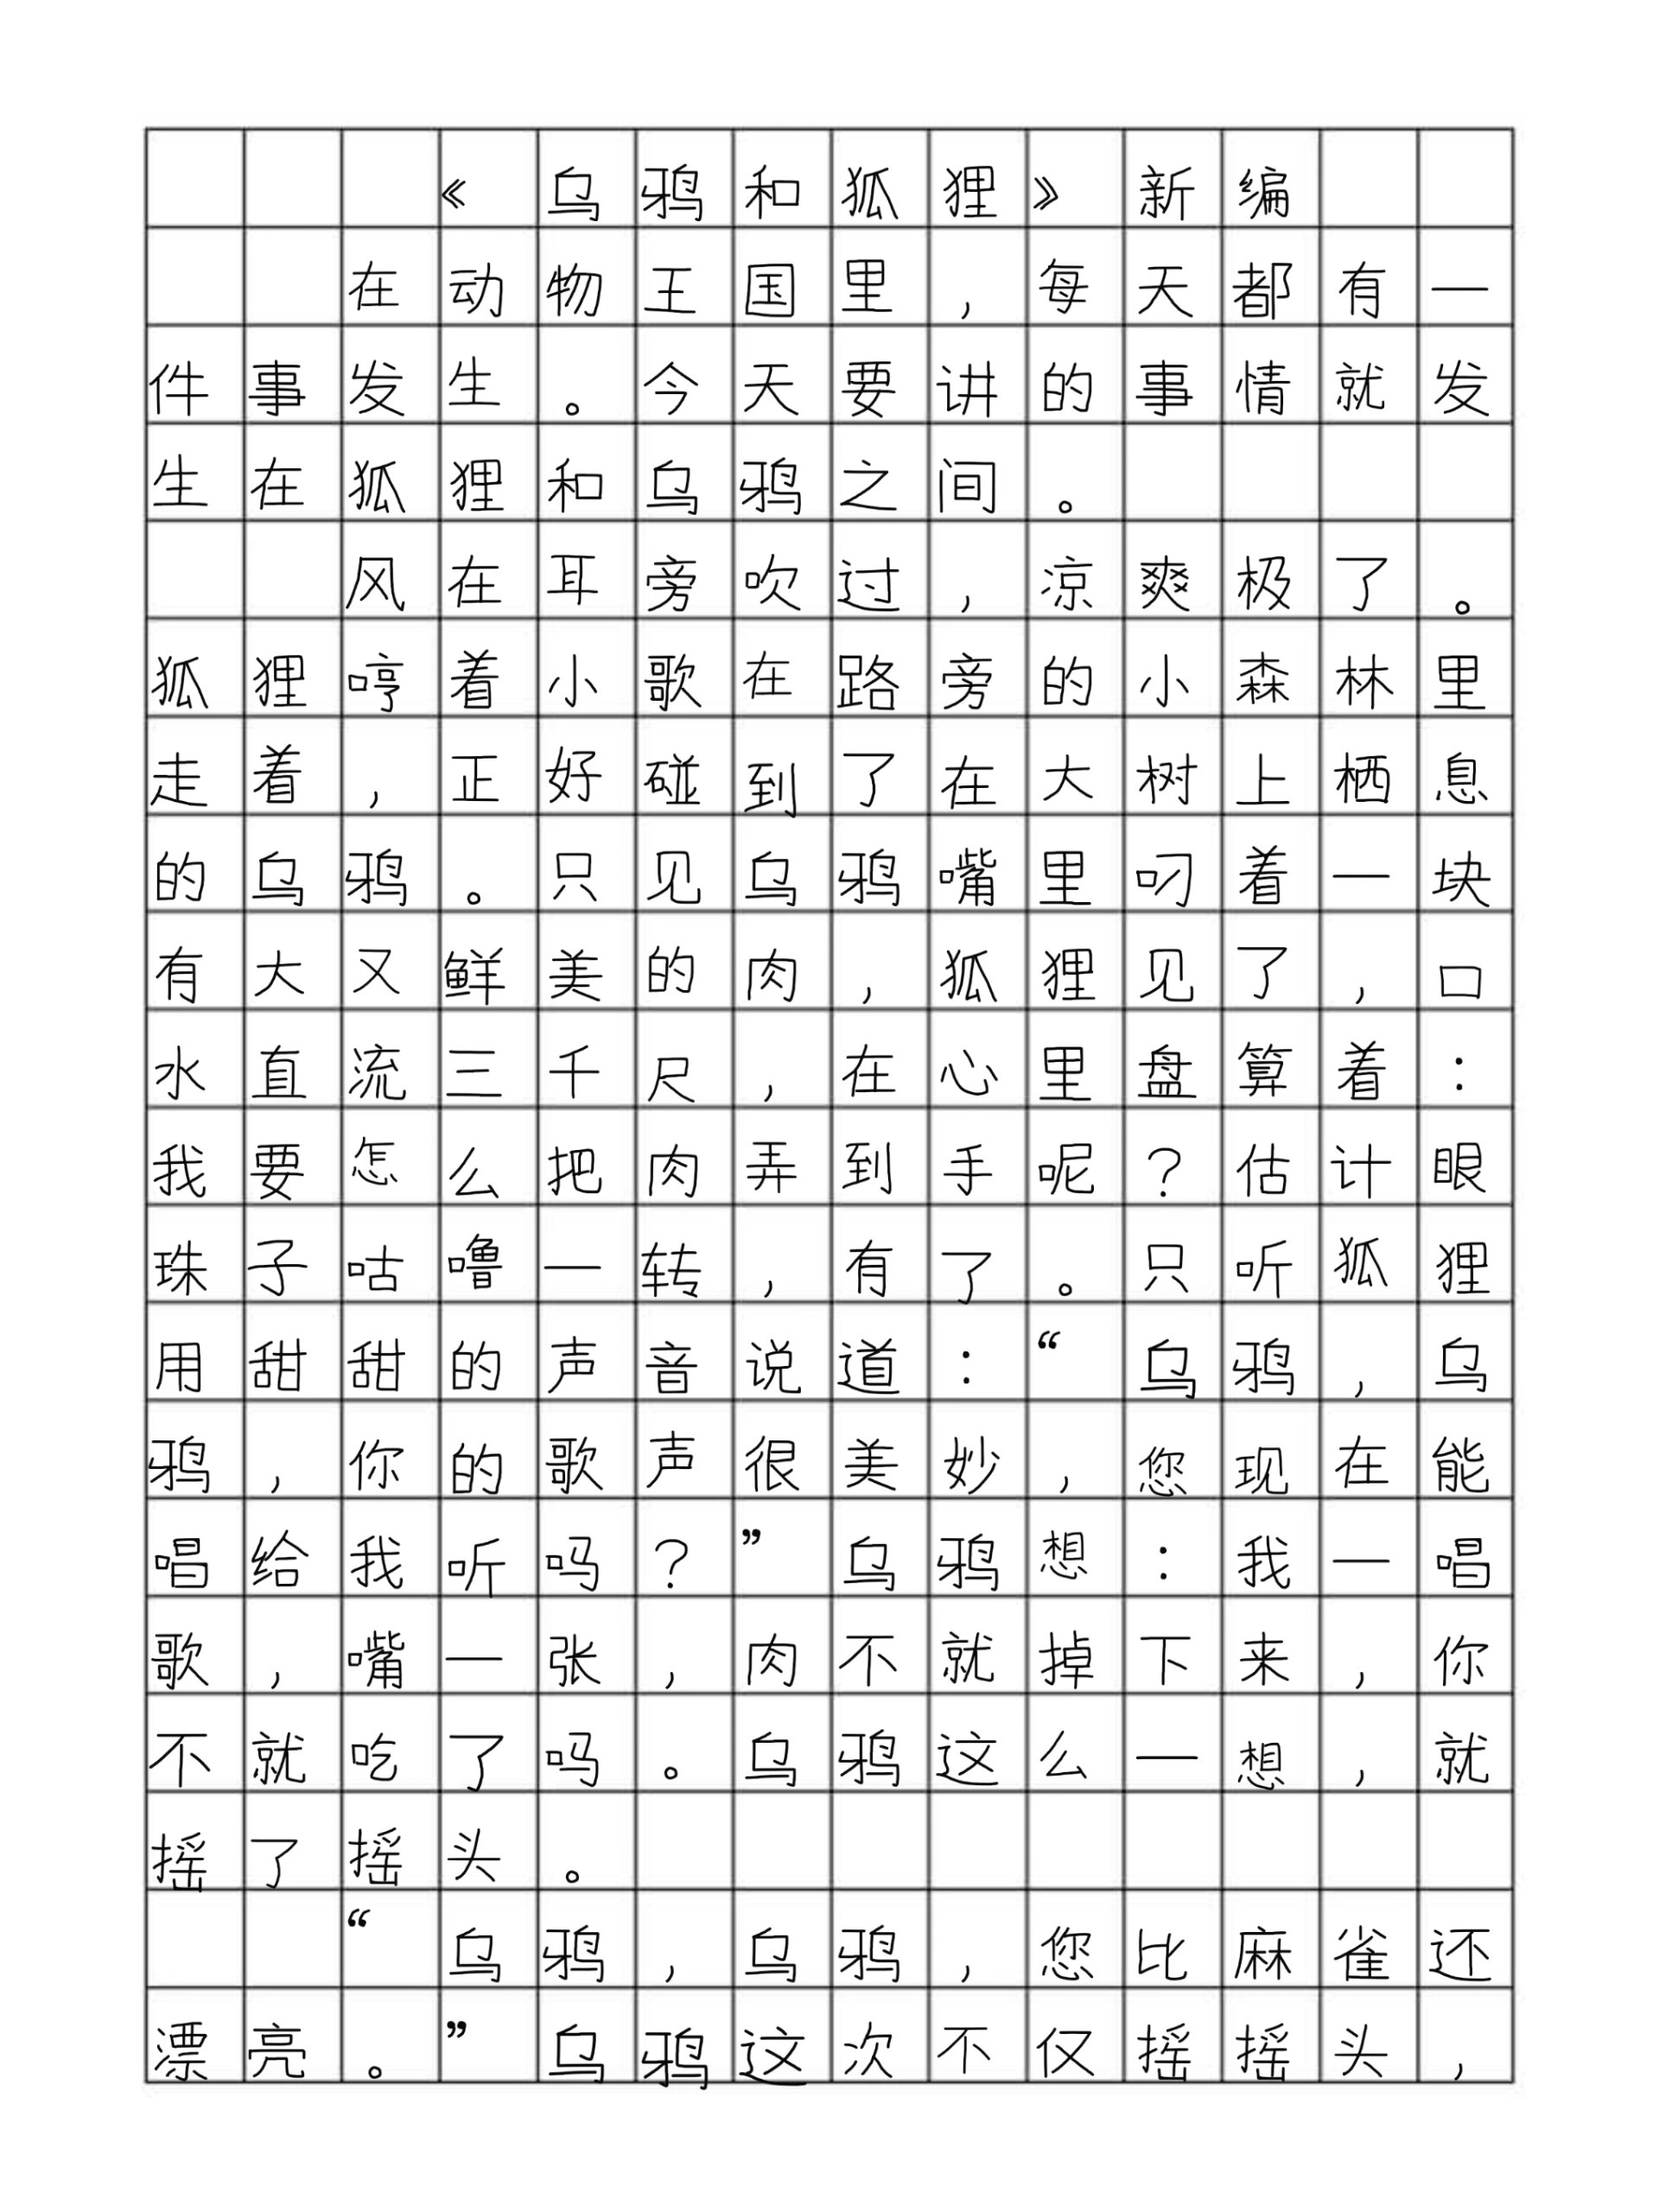 《乌鸦和狐狸》新编
在动物王国里，每天都有一
件事发生。今天要讲的事情就发
生在狐狸和乌鸦之间。
风在耳旁吹过，凉爽极了。
狐狸哼着小歌在路旁的小森林里
走着，正好碰到了在大树上栖息
的乌鸦。只见乌鸦嘴里叼着一块
有大又鲜美的肉，狐狸见了，口
水直流三千尺，在心里盘算着：
我要怎么把肉弄到手呢？估计眼
珠子咕噜一转，有了。只听狐狸
用甜甜的声音说道：“乌鸦，乌
鸦，你的歌声很美妙，您现在能
唱给我听吗？”乌鸦想：我一唱
歌，嘴一张，肉不就掉下来，你
不就吃了吗。乌鸦这么一想，就
摇了摇头。
“乌鸦，乌鸦，您比麻雀还
漂亮。”乌鸦这次不仅摇摇头，